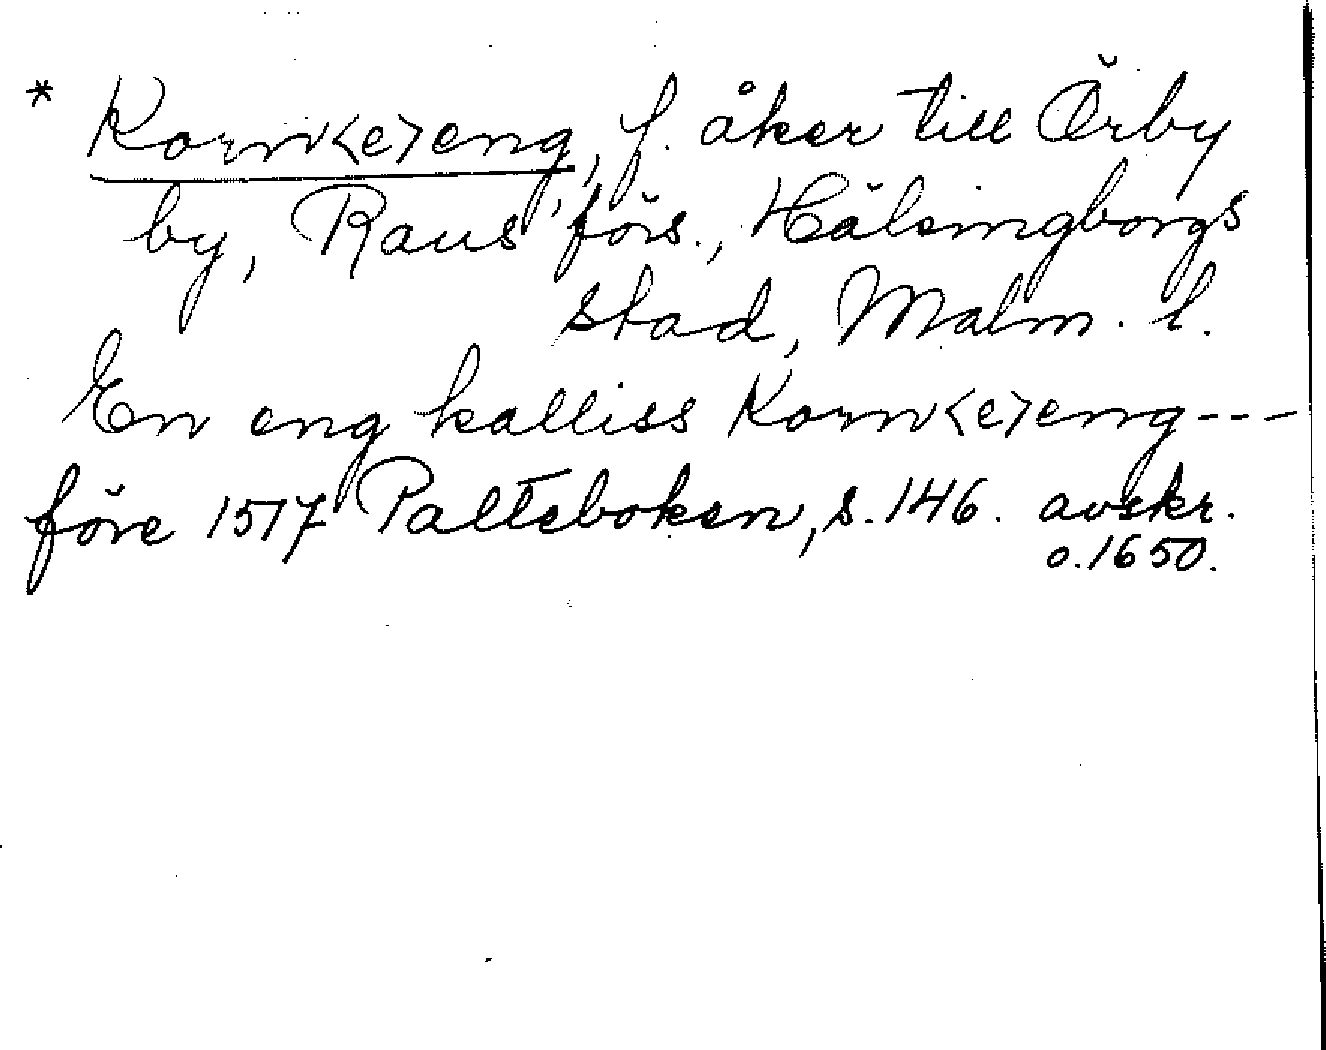 * Kornk<e>eng, f. åker till Örby
by, Raus förs., Hälsingborgs
stad, Malm. l.
En eng kalliss Kornk<e>eng---
före 1517 Palteboken, s. 146. avskr.
o. 1650.